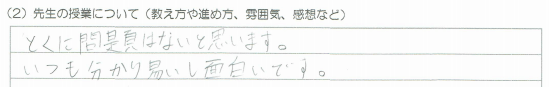 (2) 先生の授業について（教え方や進め方、雰囲気、感想など）
とくに問題はないと思います。
いつも分かり易いし面白いです。